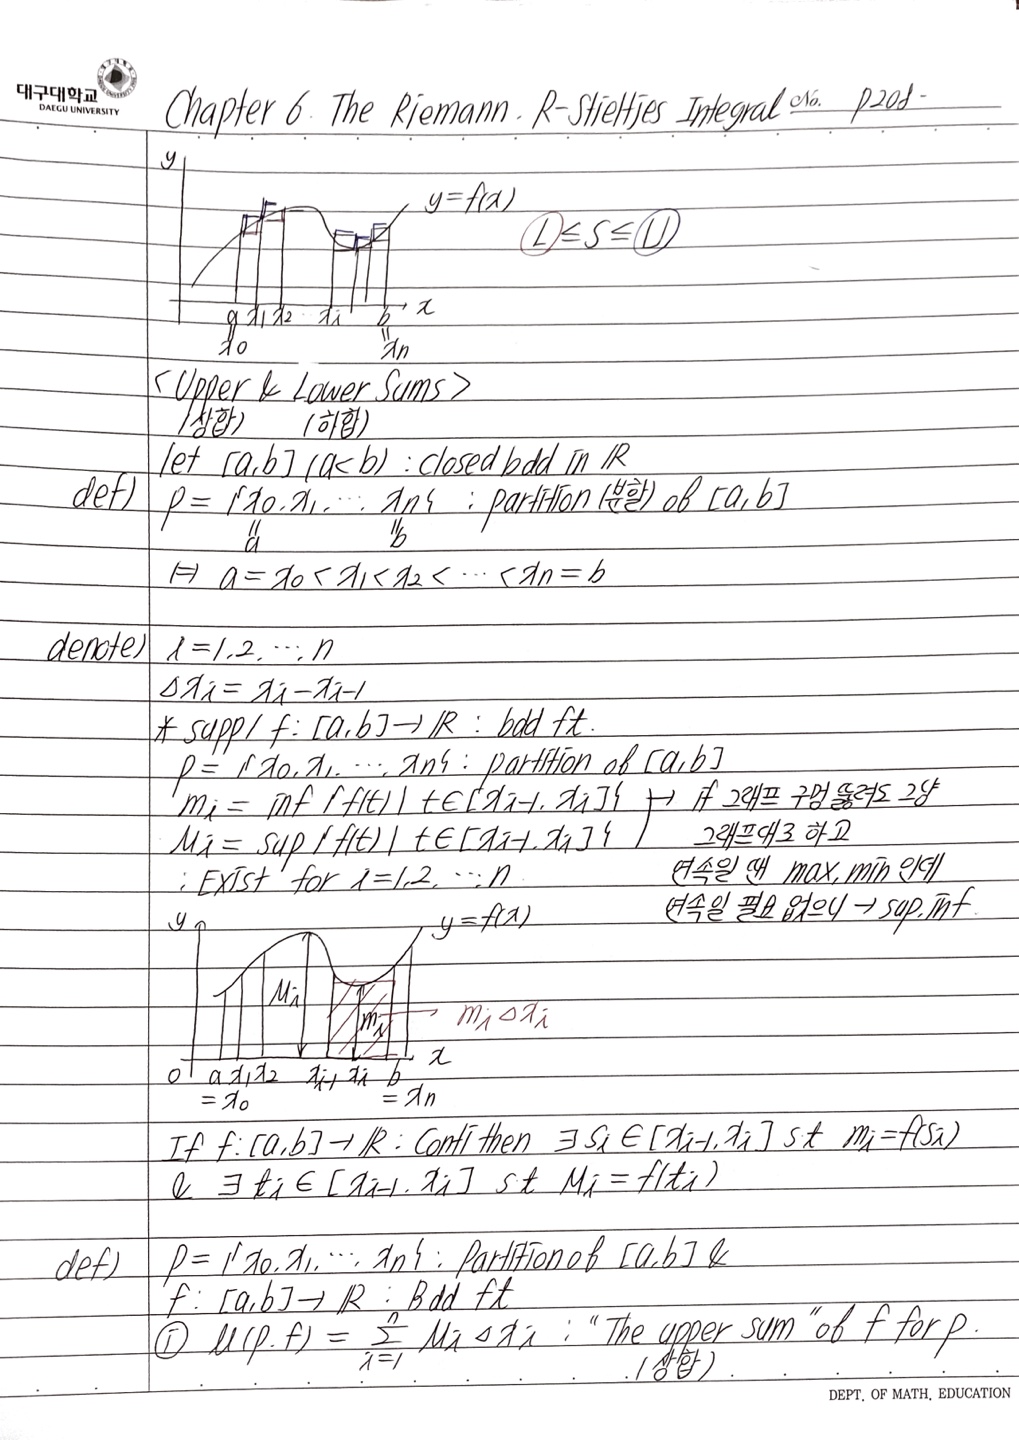 대구대학교
DAEGU UNIVERSITY
Chapter 6. The Riemann. R-Stieltjes Integral No. p208-
y
y=f(x)
Ⓛ≤S≤Ⓤ
a x1 x2 xi b x
" "
x0 xn
<Upper & Lower Sums>
(상합) (하합)
let [a,b] (a<b) : closed bdd in ℝ
def) p = {x0, x1, ⋯, xn} : partition (분할) of [a,b]
" "
a b
⊨ a = x0 < x1 < x2 < ⋯ < xn = b
denote) i = 1, 2, ⋯, n
△xi = xi - xi-1
* supp/ f : [a,b] → ℝ : bdd ft.
p = {x0, x1, ⋯, xn} : partition of [a,b]
mi = inf {f(t) | t∈[xi-1, xi]} ↦ if 그래프 구멍 뚫려도 그냥
Mi = sup {f(t) | t∈[xi-1, xi]} 그래프대로 하고
: Exist for i = 1, 2, ⋯, n 연속일 땐 max, min 인데
연속일 필요 없으니 → sup, inf
y
y=f(x)
Mi
mi
mi △xi
0 a x1 x2 xi-1 xi b x
= x0 = xn
If f : [a,b] → ℝ : Conti then ∃ si ∈ [xi-1, xi] st mi = f(si)
& ∃ ti ∈ [xi-1, xi] st Mi = f(ti)
def) p = {x0, x1, ⋯, xn} : Partition of [a,b] &
f : [a,b] → ℝ : Bdd ft
① U(p, f) = Σ i=1 n Mi △xi : "The upper sum" of f for p.
(상합)
DEPT. OF MATH. EDUCATION